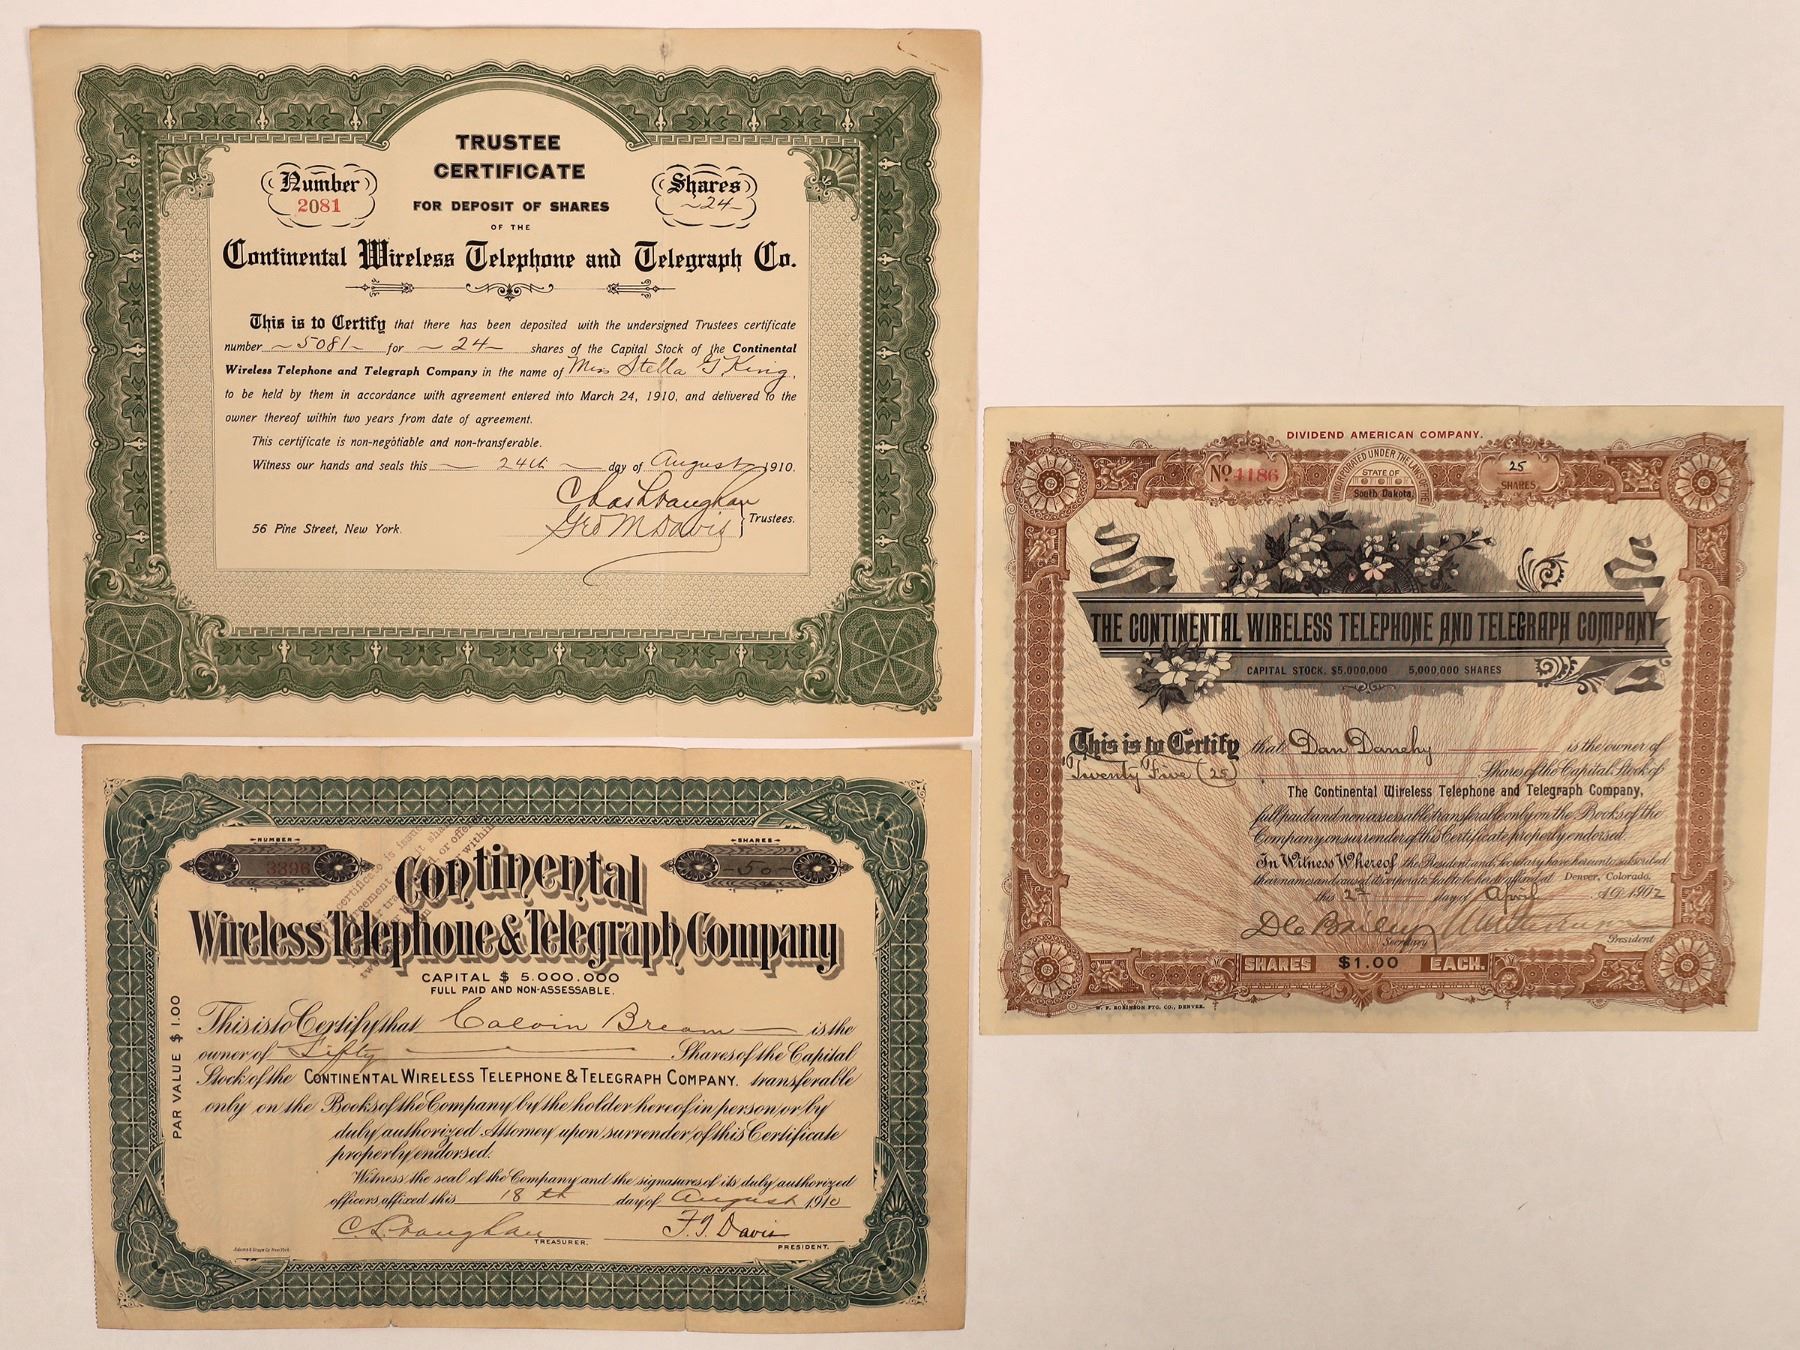 TRUSTEE
CERTIFICATE
FOR DEPOSIT OF SHARES
OF THE
Number
2081
Shares
~24~
Continental Wireless Telephone and Telegraph Co.
This is to Certify that there has been deposited with the undersigned Trustees certificate
number ~5081~ for ~24~ shares of the Capital Stock of the Continental
Wireless Telephone and Telegraph Company in the name of Miss Stella G King,
to be held by them in accordance with agreement entered into March 24, 1910, and delivered to the
owner thereof within two years from date of agreement.
This certificate is non-negotiable and non-transferable.
Witness our hands and seals this ~ 24th ~ day of August 1910.
Chas L Vaughan
Geo M Davis
Trustees.
56 Pine Street, New York.
NUMBER
3396
SHARES
-50-
Continental
Wireless Telephone & Telegraph Company
CAPITAL $ 5.000.000
FULL PAID AND NON-ASSESSABLE.
PAR VALUE $1.00
This is to Certify that Calvin Bream is the
owner of Fifty Shares of the Capital
Stock of the CONTINENTAL WIRELESS TELEPHONE & TELEGRAPH COMPANY. transferable
only on the Books of the Company by the holder hereof in person or by
duly authorized Attorney upon surrender of this Certificate
properly endorsed.
Witness the seal of the Company and the signatures of its duly authorized
officers, affixed this 18th day of August 1910
C L Vaughan
TREASURER.
F. J. Davis
PRESIDENT.
DIVIDEND AMERICAN COMPANY.
No 4186
INCORPORATED UNDER THE LAWS OF THE
STATE OF
South Dakota.
25
SHARES
THE CONTINENTAL WIRELESS TELEPHONE AND TELEGRAPH COMPANY
CAPITAL STOCK, $5,000,000 5,000,000 SHARES
This is to Certify that Dan Danehy is the owner of
Twenty Five (25) Shares of the Capital Stock of
The Continental Wireless Telephone and Telegraph Company,
full paid and non assessable transferable only on the Books of the
Company on surrender of this Certificate properly endorsed.
In Witness Whereof the President and Secretary have hereunto subscribed
their names and caused its corporate Seal to be hereto affixed at Denver, Colorado,
this 27 day of April A.D. 1902
D C Bailey
Secretary
President
SHARES $1.00 EACH.
W. F. ROBINSON PTG. CO., DENVER.